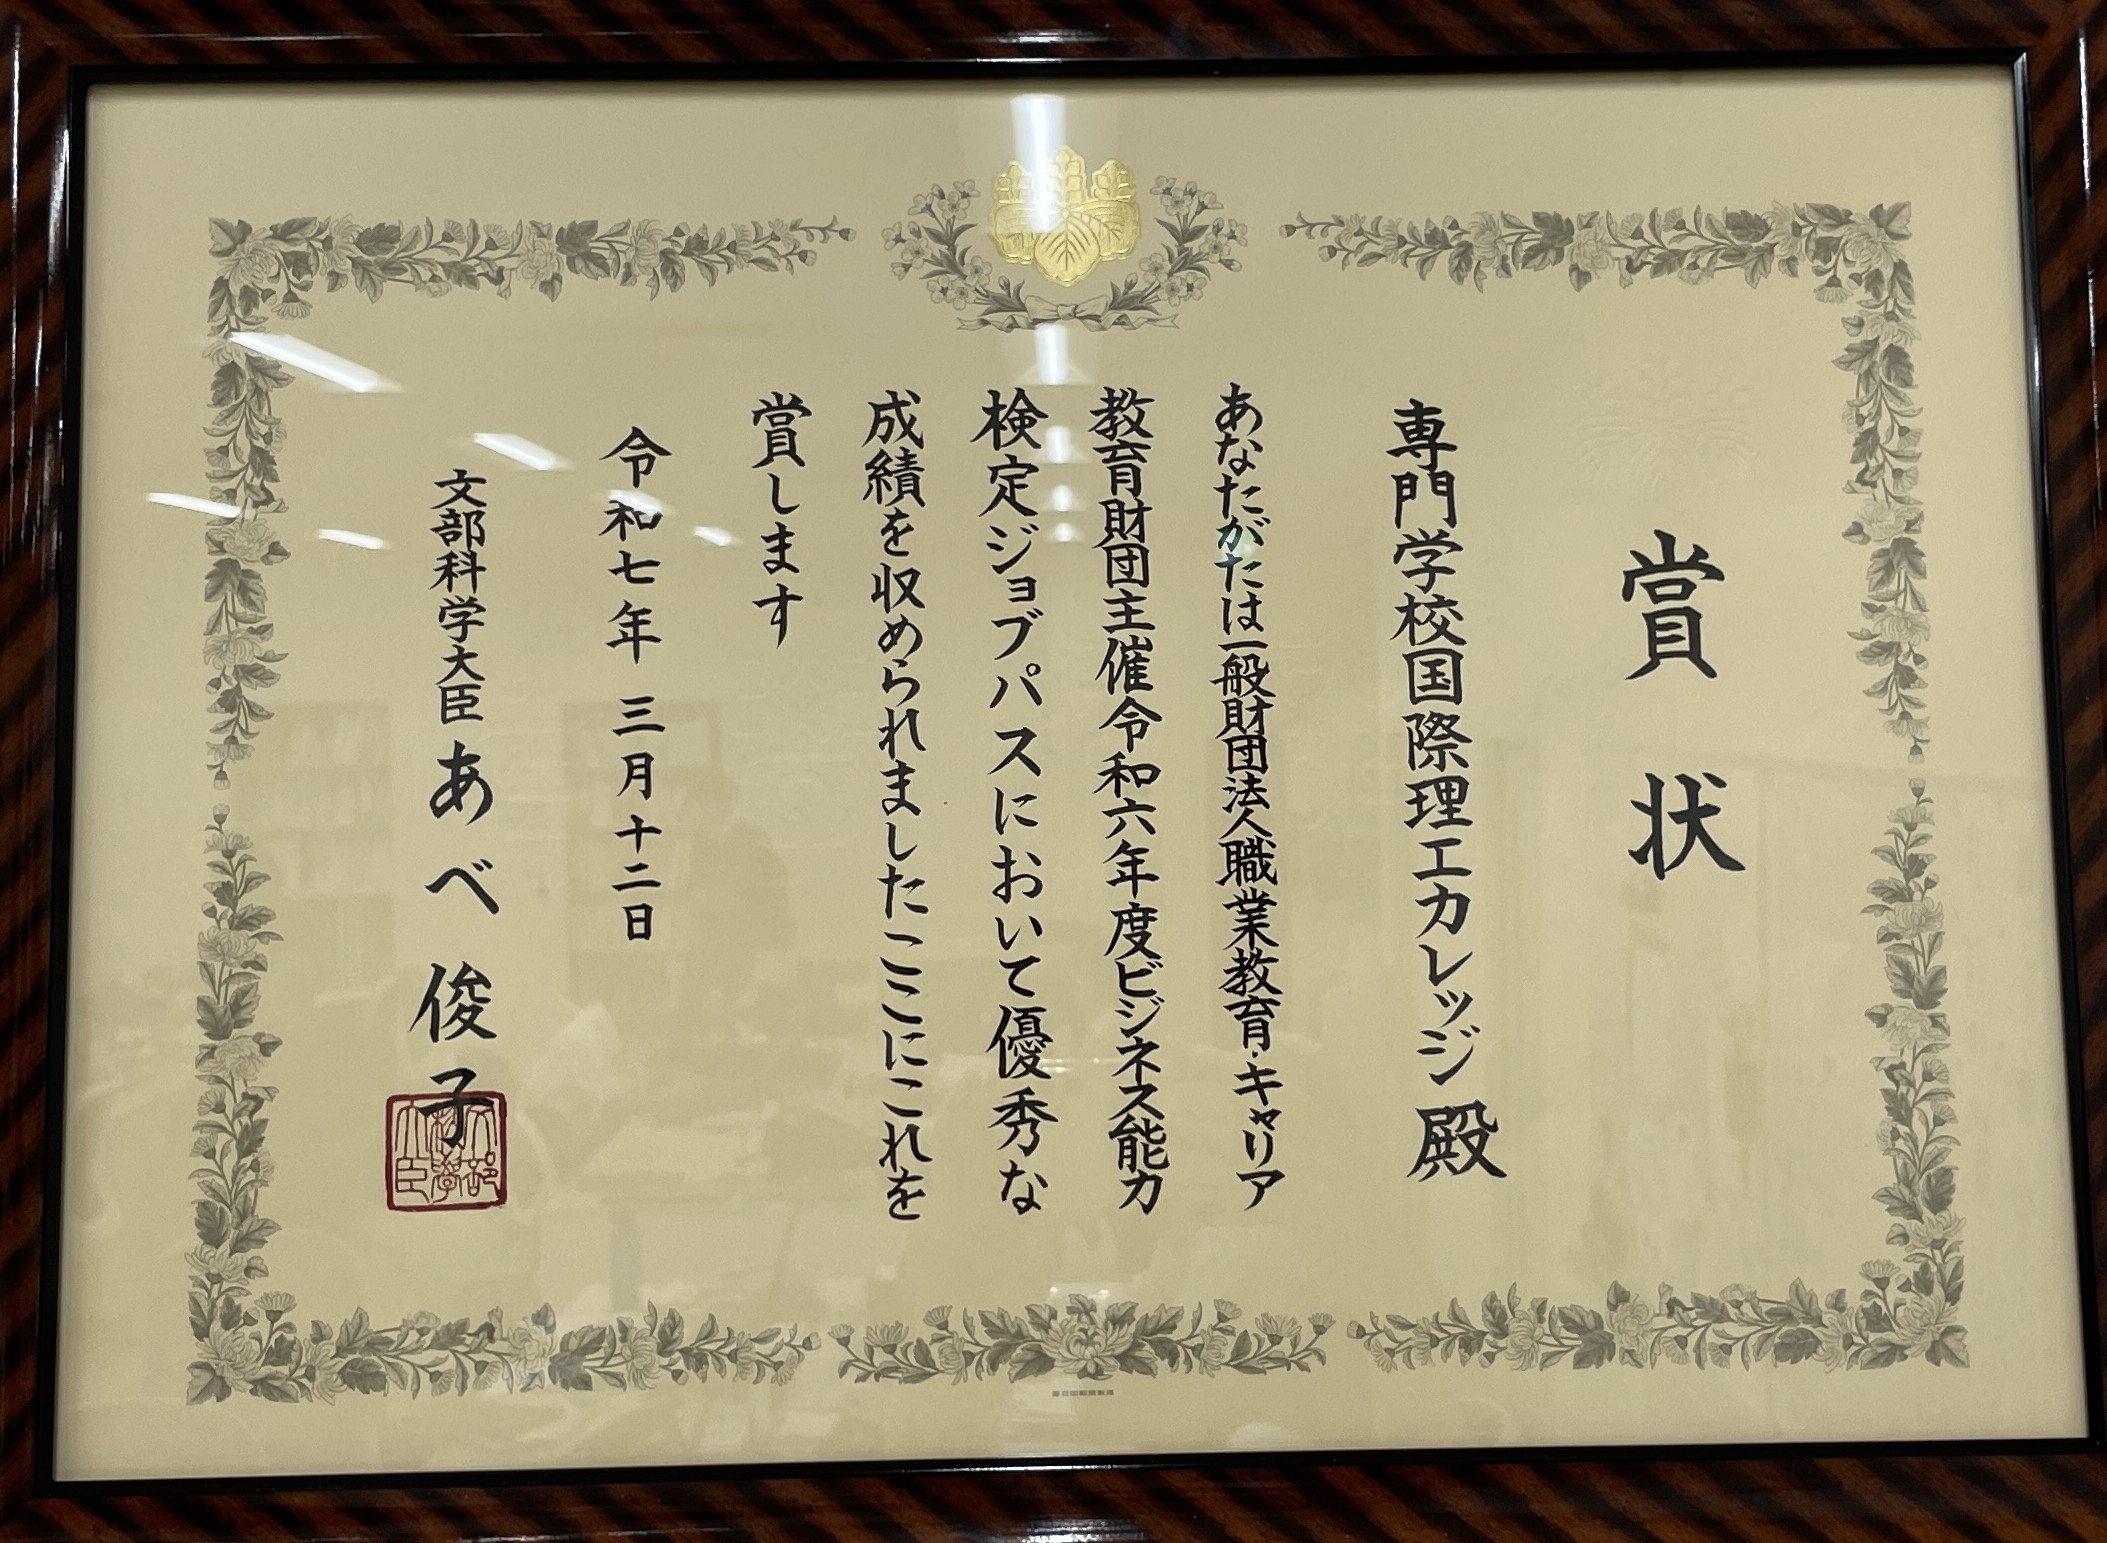 賞状
専門学校国際理工カレッジ殿
あなたがたは一般財団法人職業教育・キャリア
教育財団主催令和六年度ビジネス能力
検定ジョブパスにおいて優秀な
成績を収められましたここにこれを
賞します
令和七年三月十二日
文部科学大臣 あべ俊子